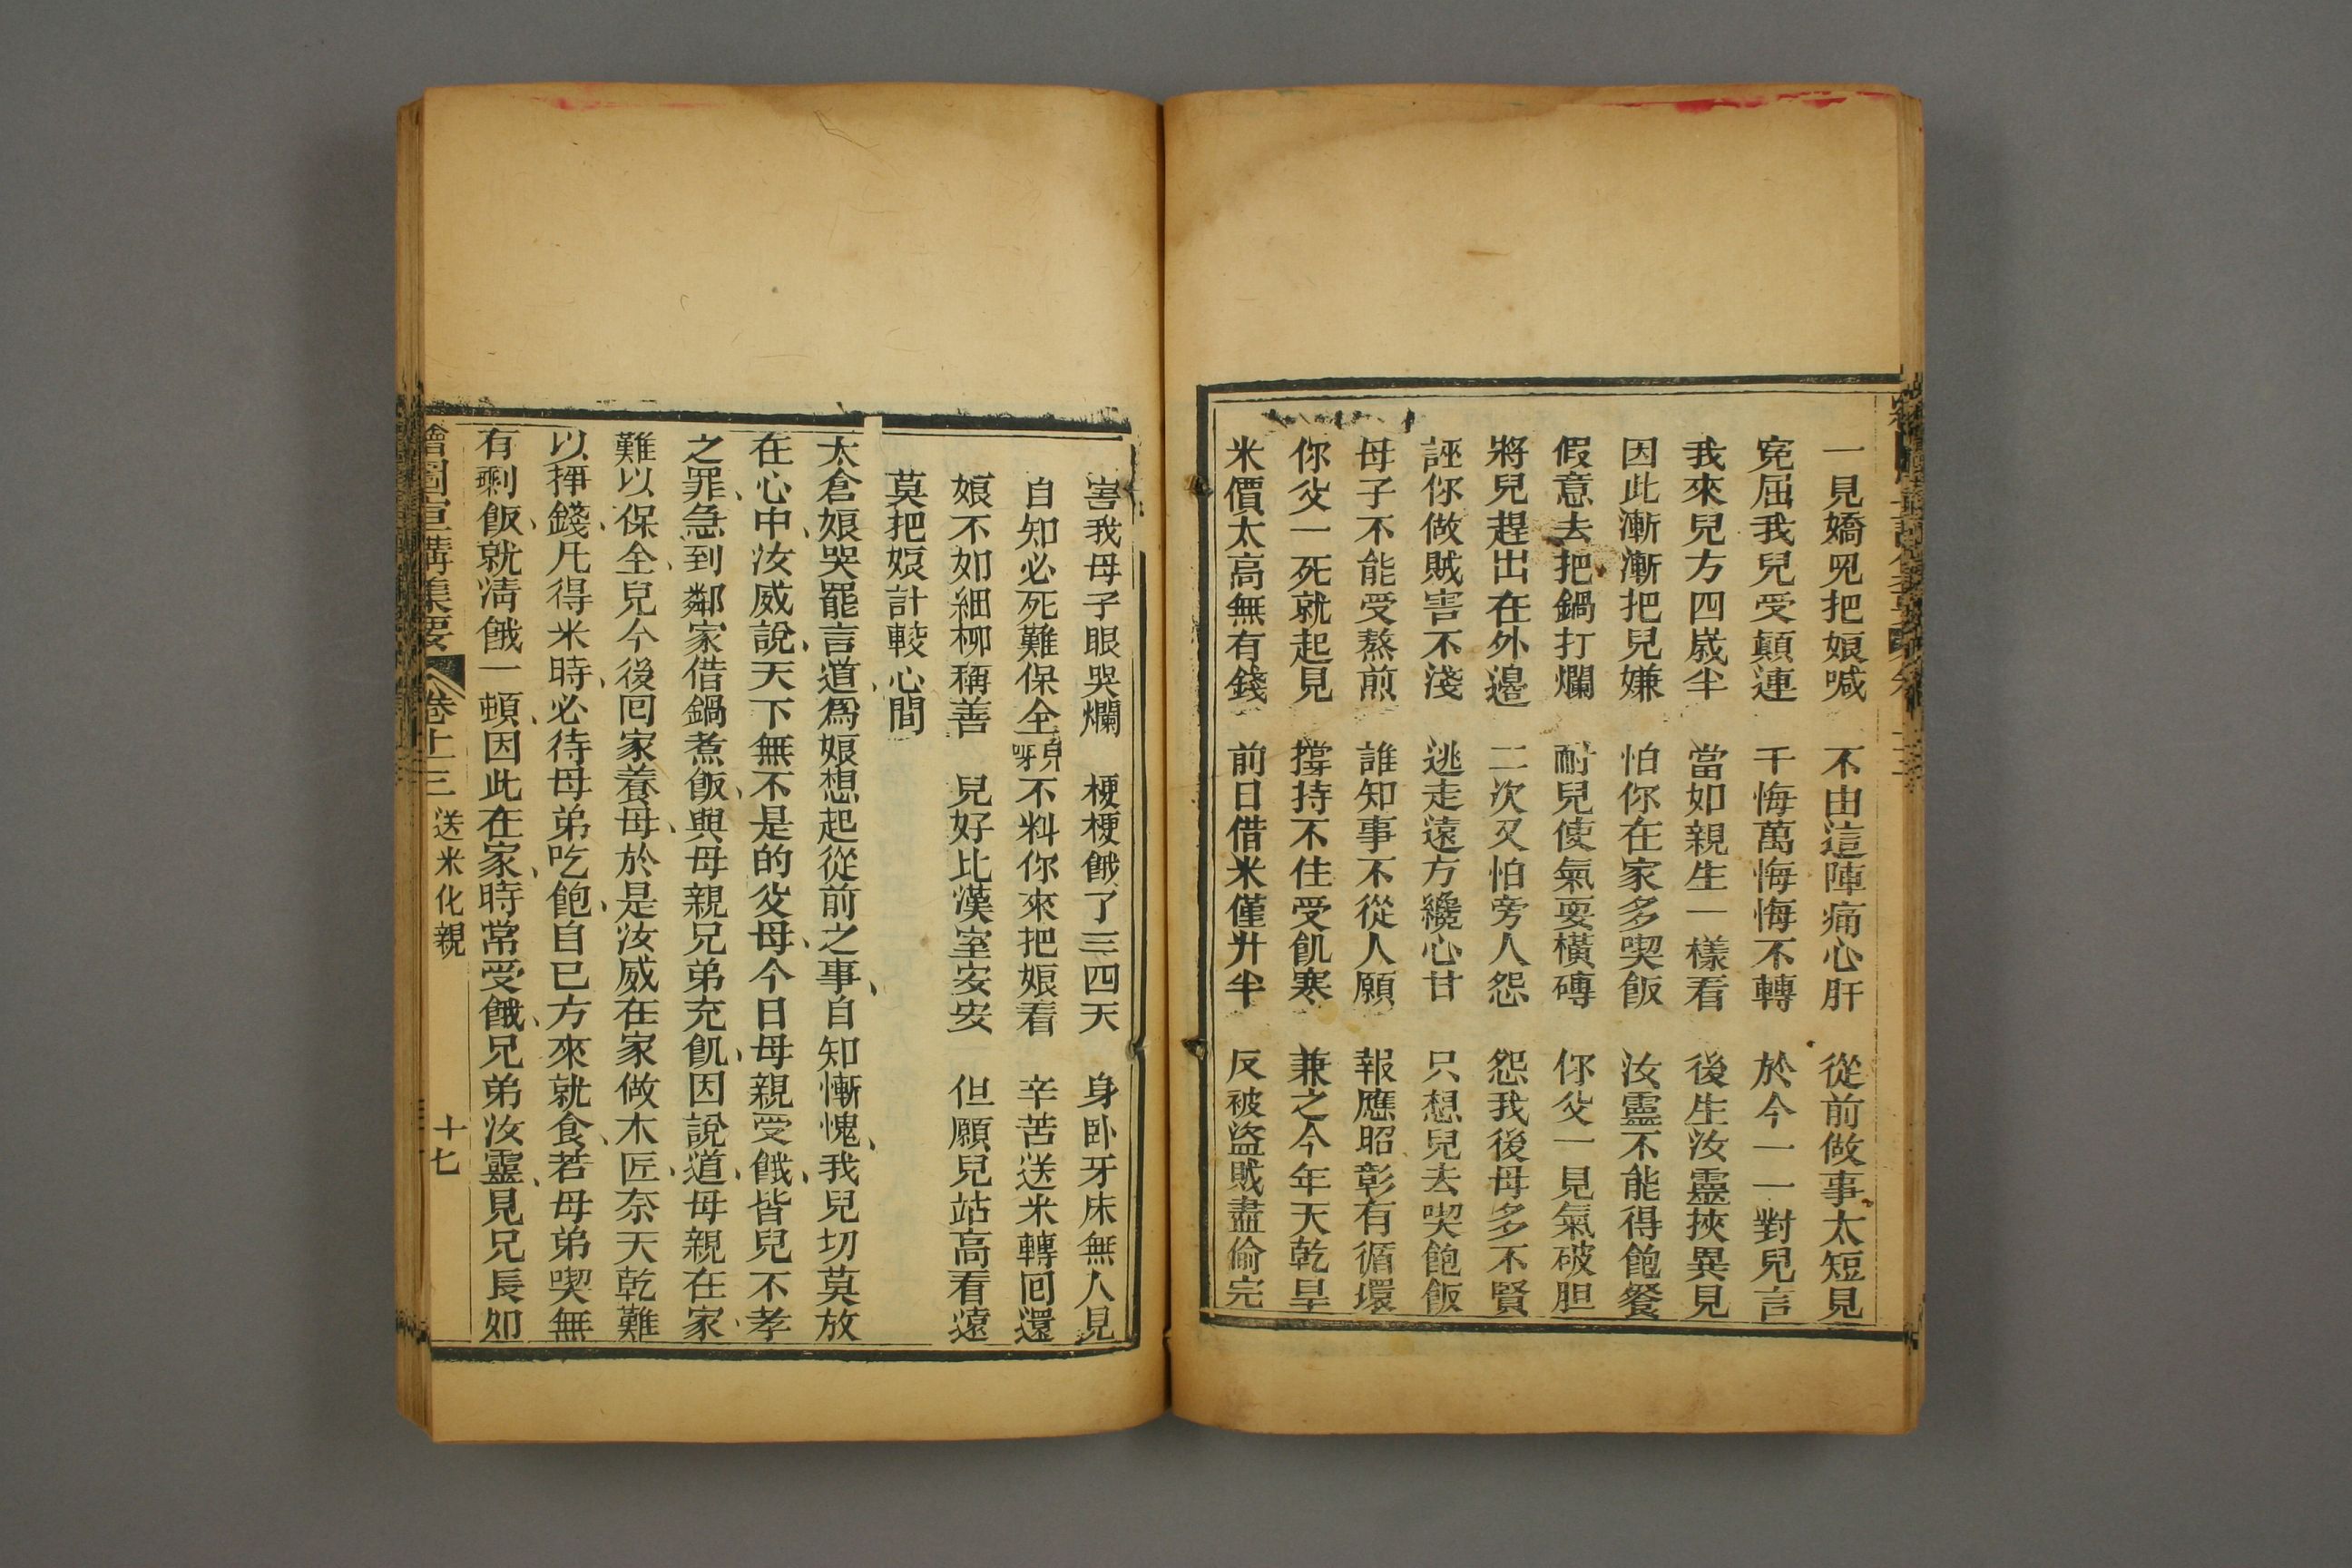 一見嬌兕把娘喊　不由這陣痛心肝　從前做事太短見
寃屈我兒受顛連　千悔萬悔悔不轉　於今一一對兒言
我來兒方四歲半　當如親生一樣看　後生汝靈挾異見
因此漸漸把兒嫌　怕你在家多喫飯　汝靈不能得飽餐
假意去把鍋打爛　耐兒使氣耍橫磚　你父一見氣破胆
將兒趕出在外邊　二次又怕旁人怨　怨我後母多不賢
誣你做賊害不淺　逃走遠方纔心甘　只想兒去喫飽飯
母子不能受熬煎　誰知事不從人願　報應昭彰有循環
你父一死就起見　撐持不住受飢寒　兼之今年天乾旱
米價太高無有錢　前日借米僅升半　反被盜賊盡偷完
害我母子眼哭爛　梗梗餓了三四天　身卧牙床無人見
自知必死難保全兒呀不料你來把娘看　辛苦送米轉回還
娘不如細柳稱善　兒好比漢室安安　但願兒站高看遠
莫把娘計較心間
太倉娘哭罷言道、爲娘想起從前之事、自知慚愧、我兒切莫放
在心中、汝威說、天下無不是的父母、今日母親受餓、皆兒不孝
之罪、急到鄰家借鍋煮飯、與母親兄弟充飢、因說道、母親在家、
難以保全、兒今後回家養母、於是汝威在家做木匠、奈天乾難
以掙錢、凡得米時、必待母弟吃飽、自已方來就食、若母弟喫無
有剩飯、就淸餓一頓、因此在家、時常受餓、兄弟汝靈、見兄長如
繪圖宣講集要　卷十三　送米化親　十七